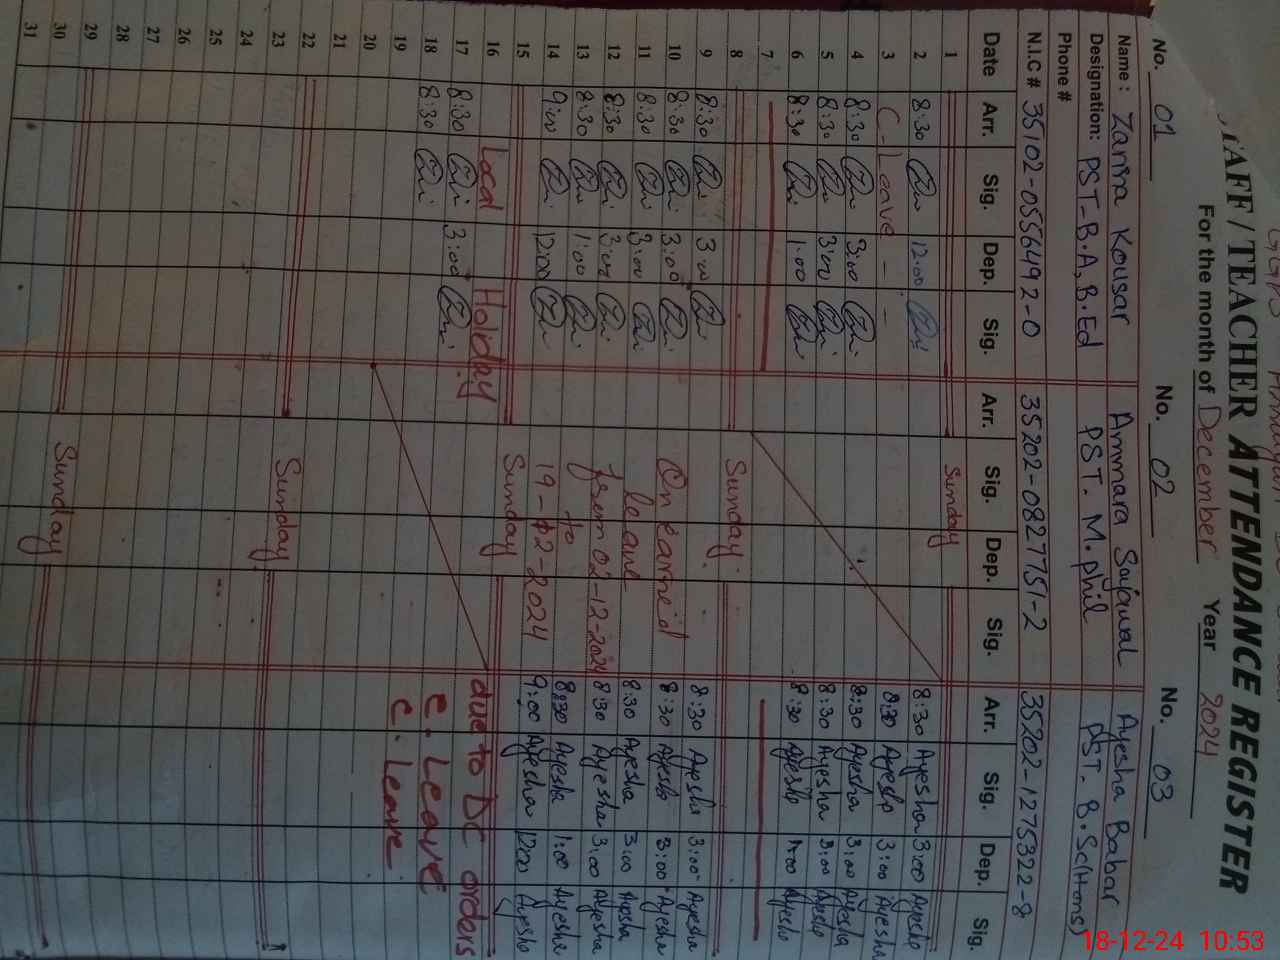 STAFF/TEACHER ATTENDANCE REGISTER
For the month of December Year 2024
No. 01 No. 02 No. 03
Name: Zanira Kousar Ammara Sajawal Ayesha Babar
Designation: PST-B.A, B.Ed PST. M.phil PST. B.Sc(Hons)
Phone #
N.I.C # 35102-0556492-0 35202-0827751-2 35202-1275322-8
Date Arr. Sig. Dep. Sig. Arr. Sig. Dep. Sig. Arr. Sig. Dep. Sig.
1 Sunday
2 8:30 12:00 8:30 Ayesha 3:00 Ayesha
3 C-Leave - - 8:30 Ayesha 3:00 Ayesha
4 8:30 3:00 8:30 Ayesha 3:00 Ayesha
5 8:30 3:00 8:30 Ayesha 3:00 Ayesha
6 8:30 1:00 8:30 Ayesha 1:00 Ayesha
7
8 Sunday
9 8:30 3:00 8:30 Ayesha 3:00 Ayesha
10 8:30 3:00 On earned 8:30 Ayesha 3:00 Ayesha
11 8:30 3:00 leave 8:30 Ayesha 3:00 Ayesha
12 8:30 3:00 from 02-12-2024 8:30 Ayesha 3:00 Ayesha
13 8:30 1:00 to 8:30 Ayesha 1:00 Ayesha
14 9:00 12:00 19-12-2024 9:00 Ayesha 12:00 Ayesha
15 Sunday
16 Local Holiday due to DC orders
17 8:30 3:00 C. Leave
18 8:30 C. Leave
19
20
21
22 Sunday
23
24
25
26
27
28
29 Sunday
30
31
18-12-24 10:53